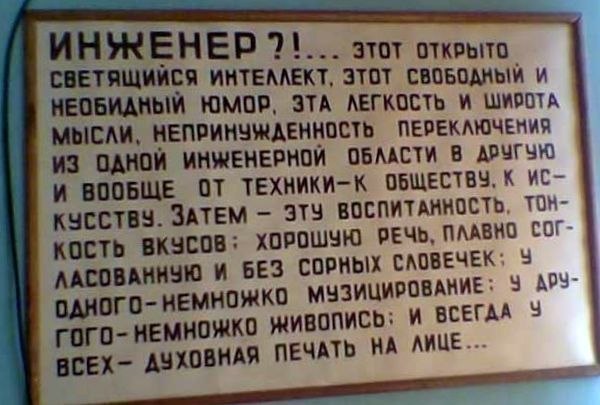 ИНЖЕНЕР ?!... ЭТОТ ОТКРЫТО
СВЕТЯЩИЙСЯ ИНТЕЛЛЕКТ, ЭТОТ СВОБОДНЫЙ И
НЕОБИДНЫЙ ЮМОР, ЭТА ЛЕГКОСТЬ И ШИРОТА
МЫСЛИ, НЕПРИНУЖДЕННОСТЬ ПЕРЕКЛЮЧЕНИЯ
ИЗ ОДНОЙ ИНЖЕНЕРНОЙ ОБЛАСТИ В ДРУГУЮ
И ВООБЩЕ ОТ ТЕХНИКИ-К ОБЩЕСТВУ, К ИС-
КУССТВУ. ЗАТЕМ - ЭТУ ВОСПИТАННОСТЬ, ТОН-
КОСТЬ ВКУСОВ; ХОРОШУЮ РЕЧЬ, ПЛАВНО СОГ-
ЛАСОВАННУЮ И БЕЗ СОРНЫХ СЛОВЕЧЕК; У
ОДНОГО-НЕМНОЖКО МУЗИЦИРОВАНИЕ; У ДРУ-
ГОГО-НЕМНОЖКО ЖИВОПИСЬ; И ВСЕГДА У
ВСЕХ- ДУХОВНАЯ ПЕЧАТЬ НА ЛИЦЕ...